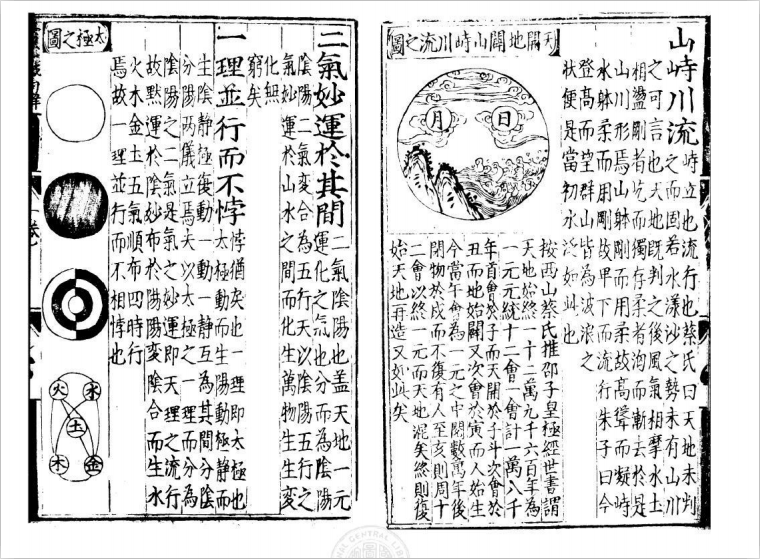 山峙川流峙立也流行也蔡氏曰天地未判
之可言也天地既判之後風氣相摩水土
之而固若水漾沙之勢未有山川
相盪剛者屹而獨存柔者洶而漸去於是
山川形焉山躰剛而用柔故高聳而凝峙
水躰柔而用剛故卑下而流行朱子曰今
登高而望群山皆為波浪之
狀便是當初水泛如此也
天開地闢山峙川流之圖
日
月
按西山蔡氏推邵子皇極經世書謂
天地始終一十二萬九千六百年為
一元元統十二會一會計一萬八千
年首會於子而天開於子斗次會於
丑而地始闢又次會於寅而人始生
今當午會為一元之中閱數萬年後
閉物於戌而不復有人至亥則周十
二會以終一元而天地混矣終則復
始天地再造又如此矣
二氣妙運於其間二氣陰陽也蓋天地一元
運化之氣也分而為陰陽
陰陽二氣變合為五行天以陰陽五行之
氣妙運於山水之間而化生萬物生生變
化無
窮矣
一理並行而不悖悖猶矣也一理即太極也
太極動而生陽動極而靜靜而
生陰靜極復動一動一靜互為其間分陰
分陽兩儀立焉夫以太極之理而分為
陰陽之二氣是氣之妙運即天理之流行
故默運於陰妙布於陽陽變陰合而生水
火木金土五氣順布四時行
焉故一理並行而不相悖也
太極之圖
火
水
土
木
金